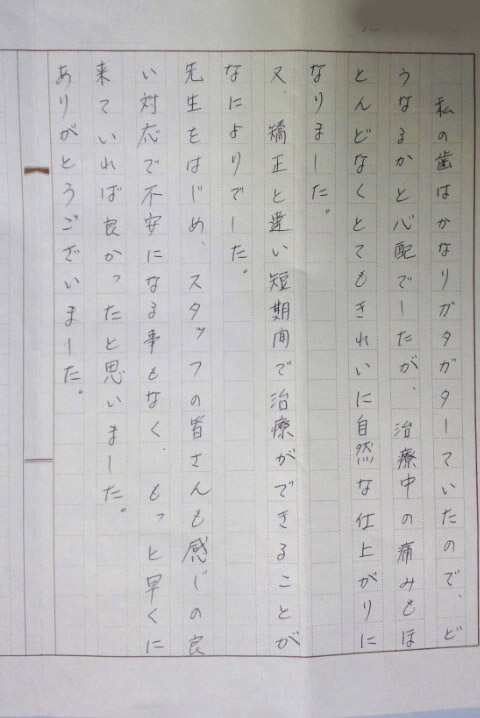 私の歯はかなりガタガタしていたので、ど
うなるかと心配でしたが、治療中の痛みもほ
とんどなくとてもきれいに自然な仕上がりに
なりました。
又、矯正と違い短期間で治療ができることが
なによりでした。
先生をはじめ、スタッフの皆さんも感じの良
い対応で不安になる事もなく、もっと早くに
来ていれば良かったと思いました。
ありがとうございました。